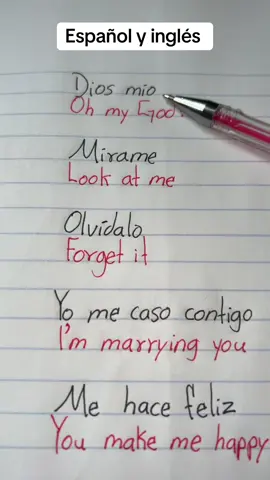 Español y inglés
Dios mio
Oh my God
Mirame
Look at me
Olvídalo
Forget it
Yo me caso contigo
I'm marrying you
Me hace feliz
You make me happy